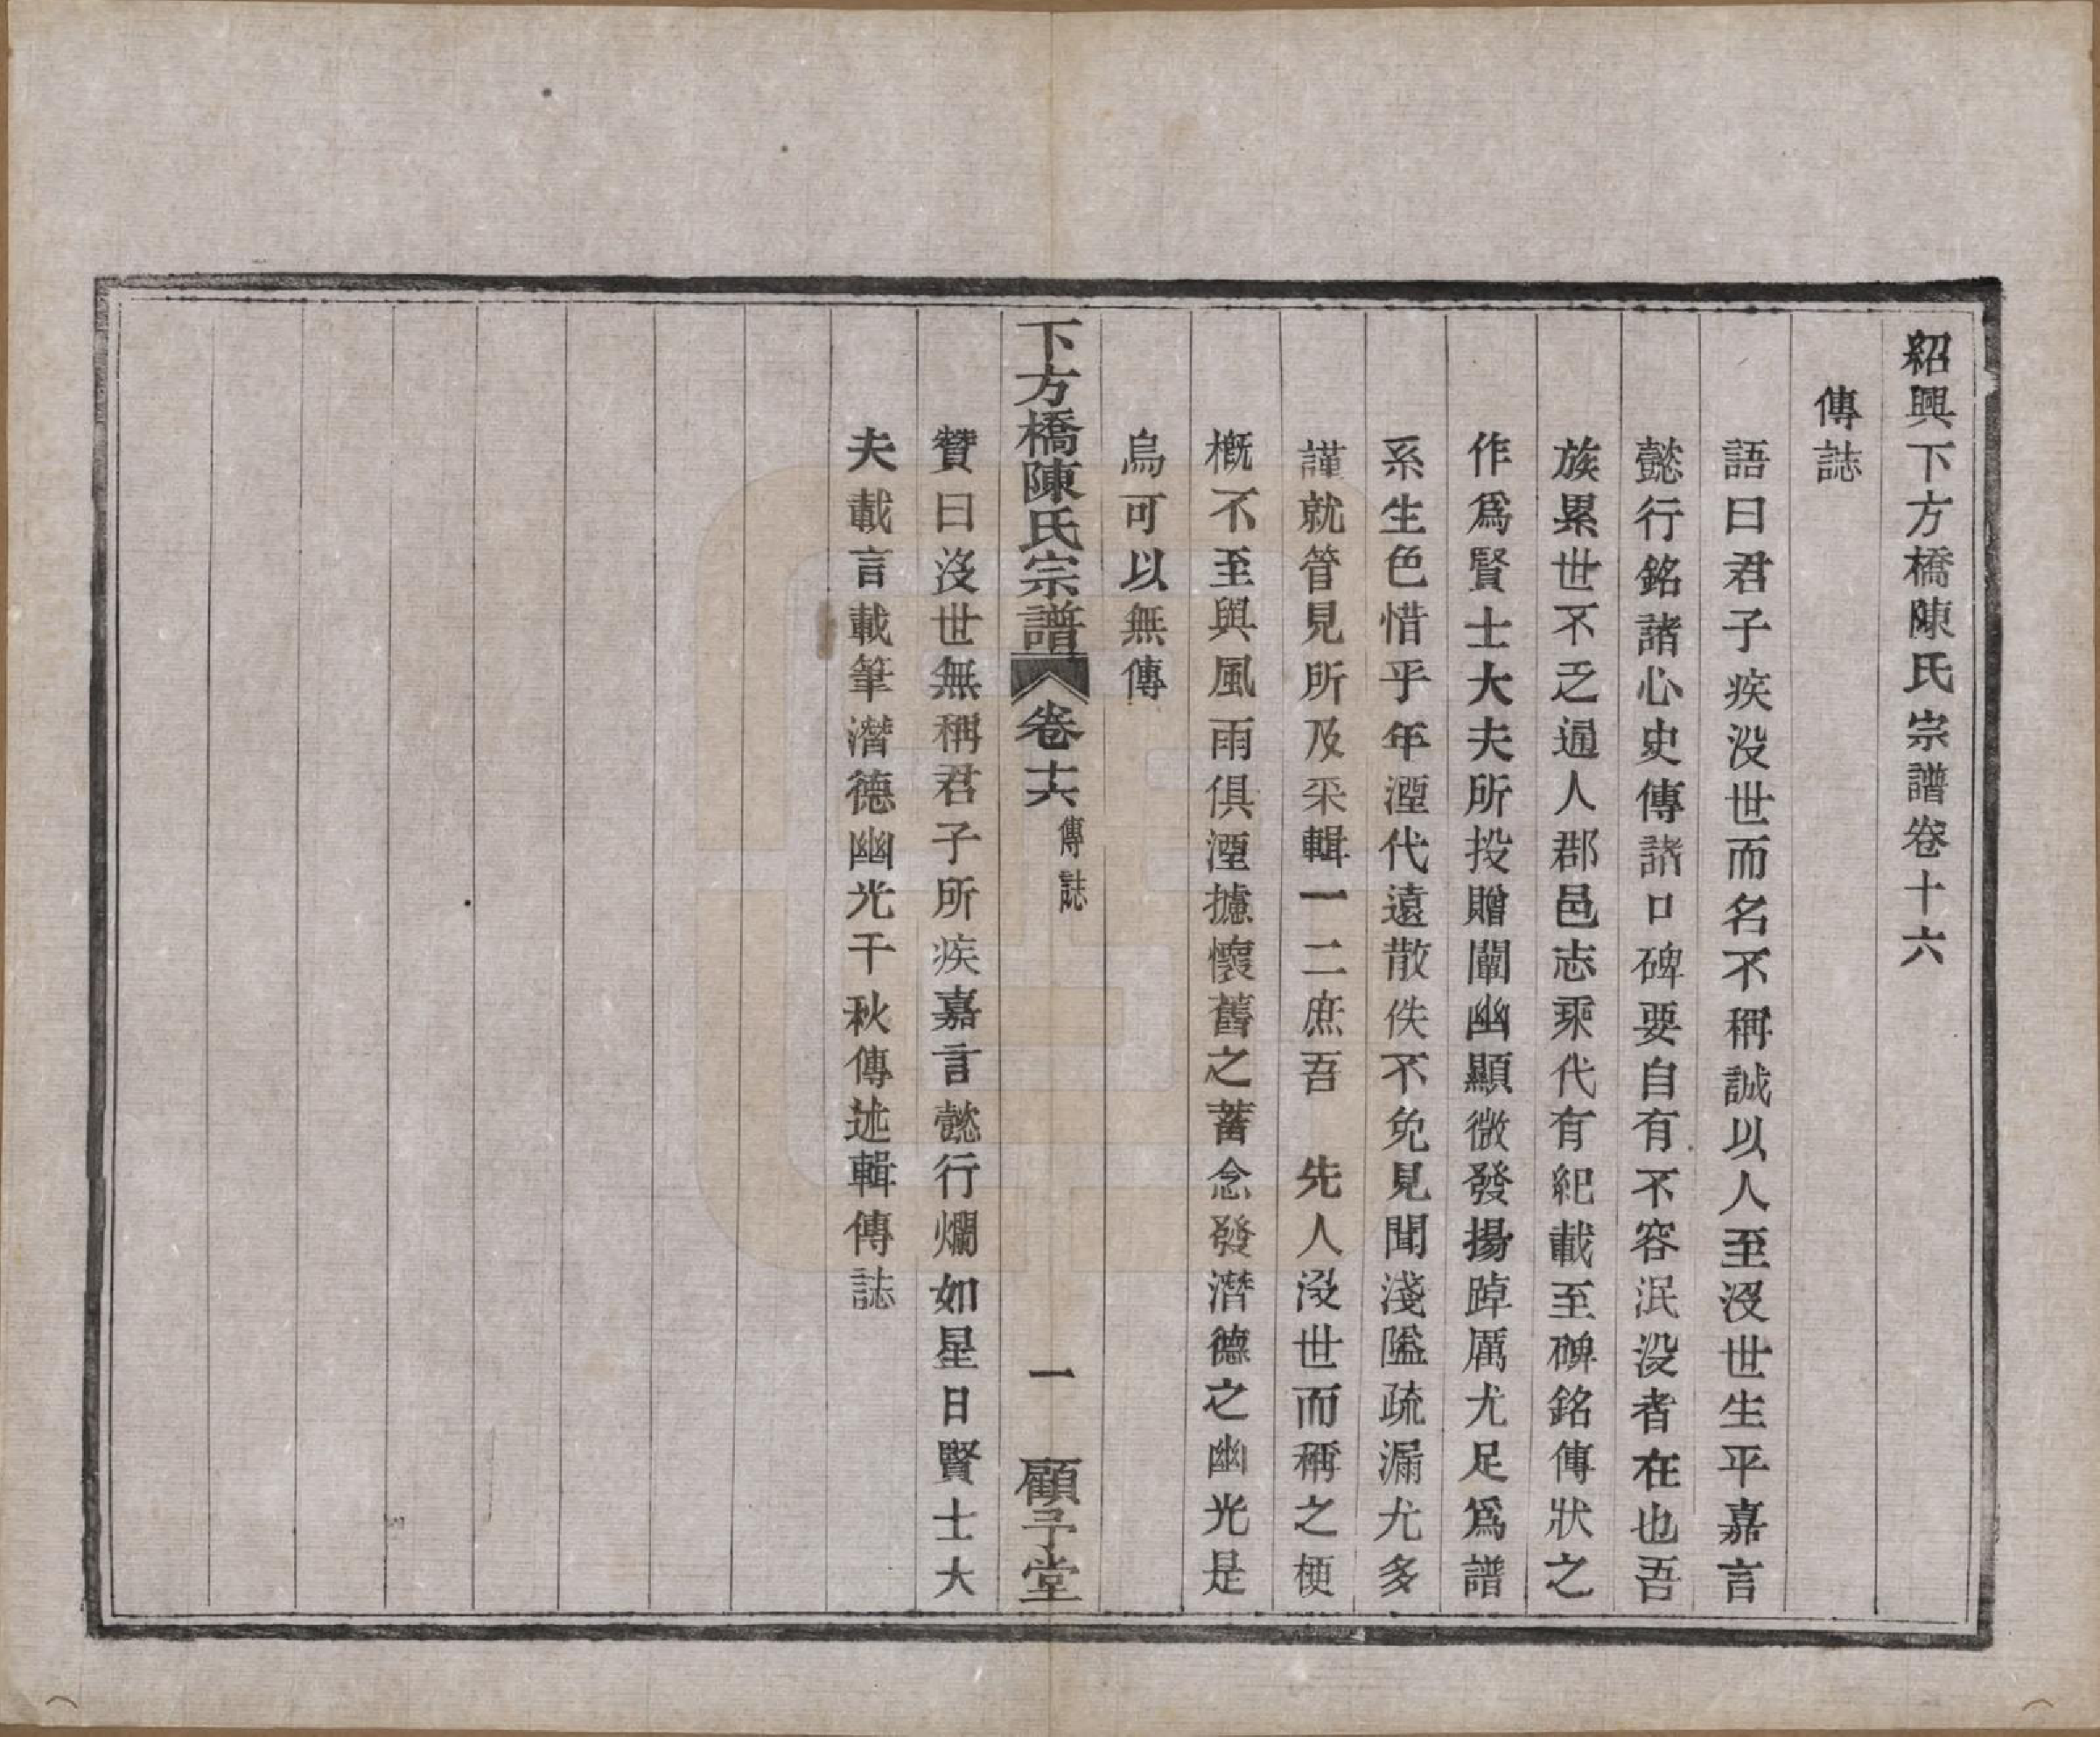 紹興下方橋陳氏宗譜卷十六
傳誌
語曰君子疾没世而名不稱誠以人至没世生平嘉言
懿行銘諸心史傳諸口碑要自有不容泯没者在也吾
族累世不乏通人郡邑志乘代有紀載至碑銘傳狀之
作爲賢士大夫所投贈闡幽顯微發揚踔厲尤足爲譜
系生色惜乎年湮代遠散佚不免見聞淺隘疏漏尤多
謹就管見所及采輯一二庶吾　先人没世而稱之梗
概不至與風雨俱湮攄懷舊之蓄念發潛德之幽光是
烏可以無傳
下方橋陳氏宗譜　卷十六　傳誌　一　顧予堂
贊曰沒世無稱君子所疾嘉言懿行爛如星日賢士大
夫載言載筆潛德幽光千秋傳述輯傳誌